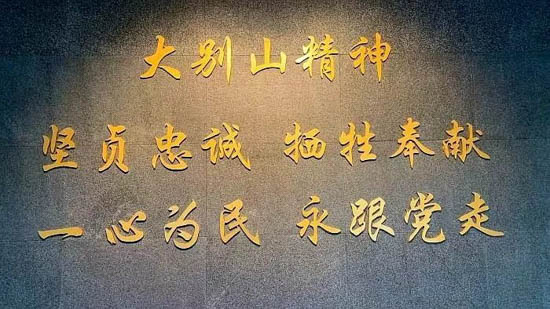 大别山精神
坚贞忠诚 牺牲奉献
一心为民 永跟党走